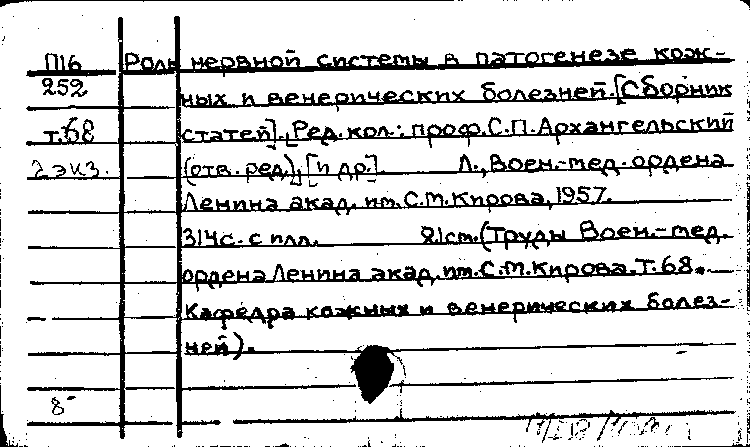 П16 Роль нервной системы в патогенезе кож-
252 ных и венерических болезней. [Сборник
т.68 статей]. [Ред. кол.: проф. С.П. Архангельский
2 экз. (отв. ред.), [и др.]. Л., Воен.-мед. ордена
Ленина акад. им. С.М. Кирова, 1957.
314с. с илл. 21см. (Труды Воен.-мед.
ордена Ленина акад. им. С.М. Кирова. Т. 68.
Кафедра кожных и венерических болез-
ней).
8-